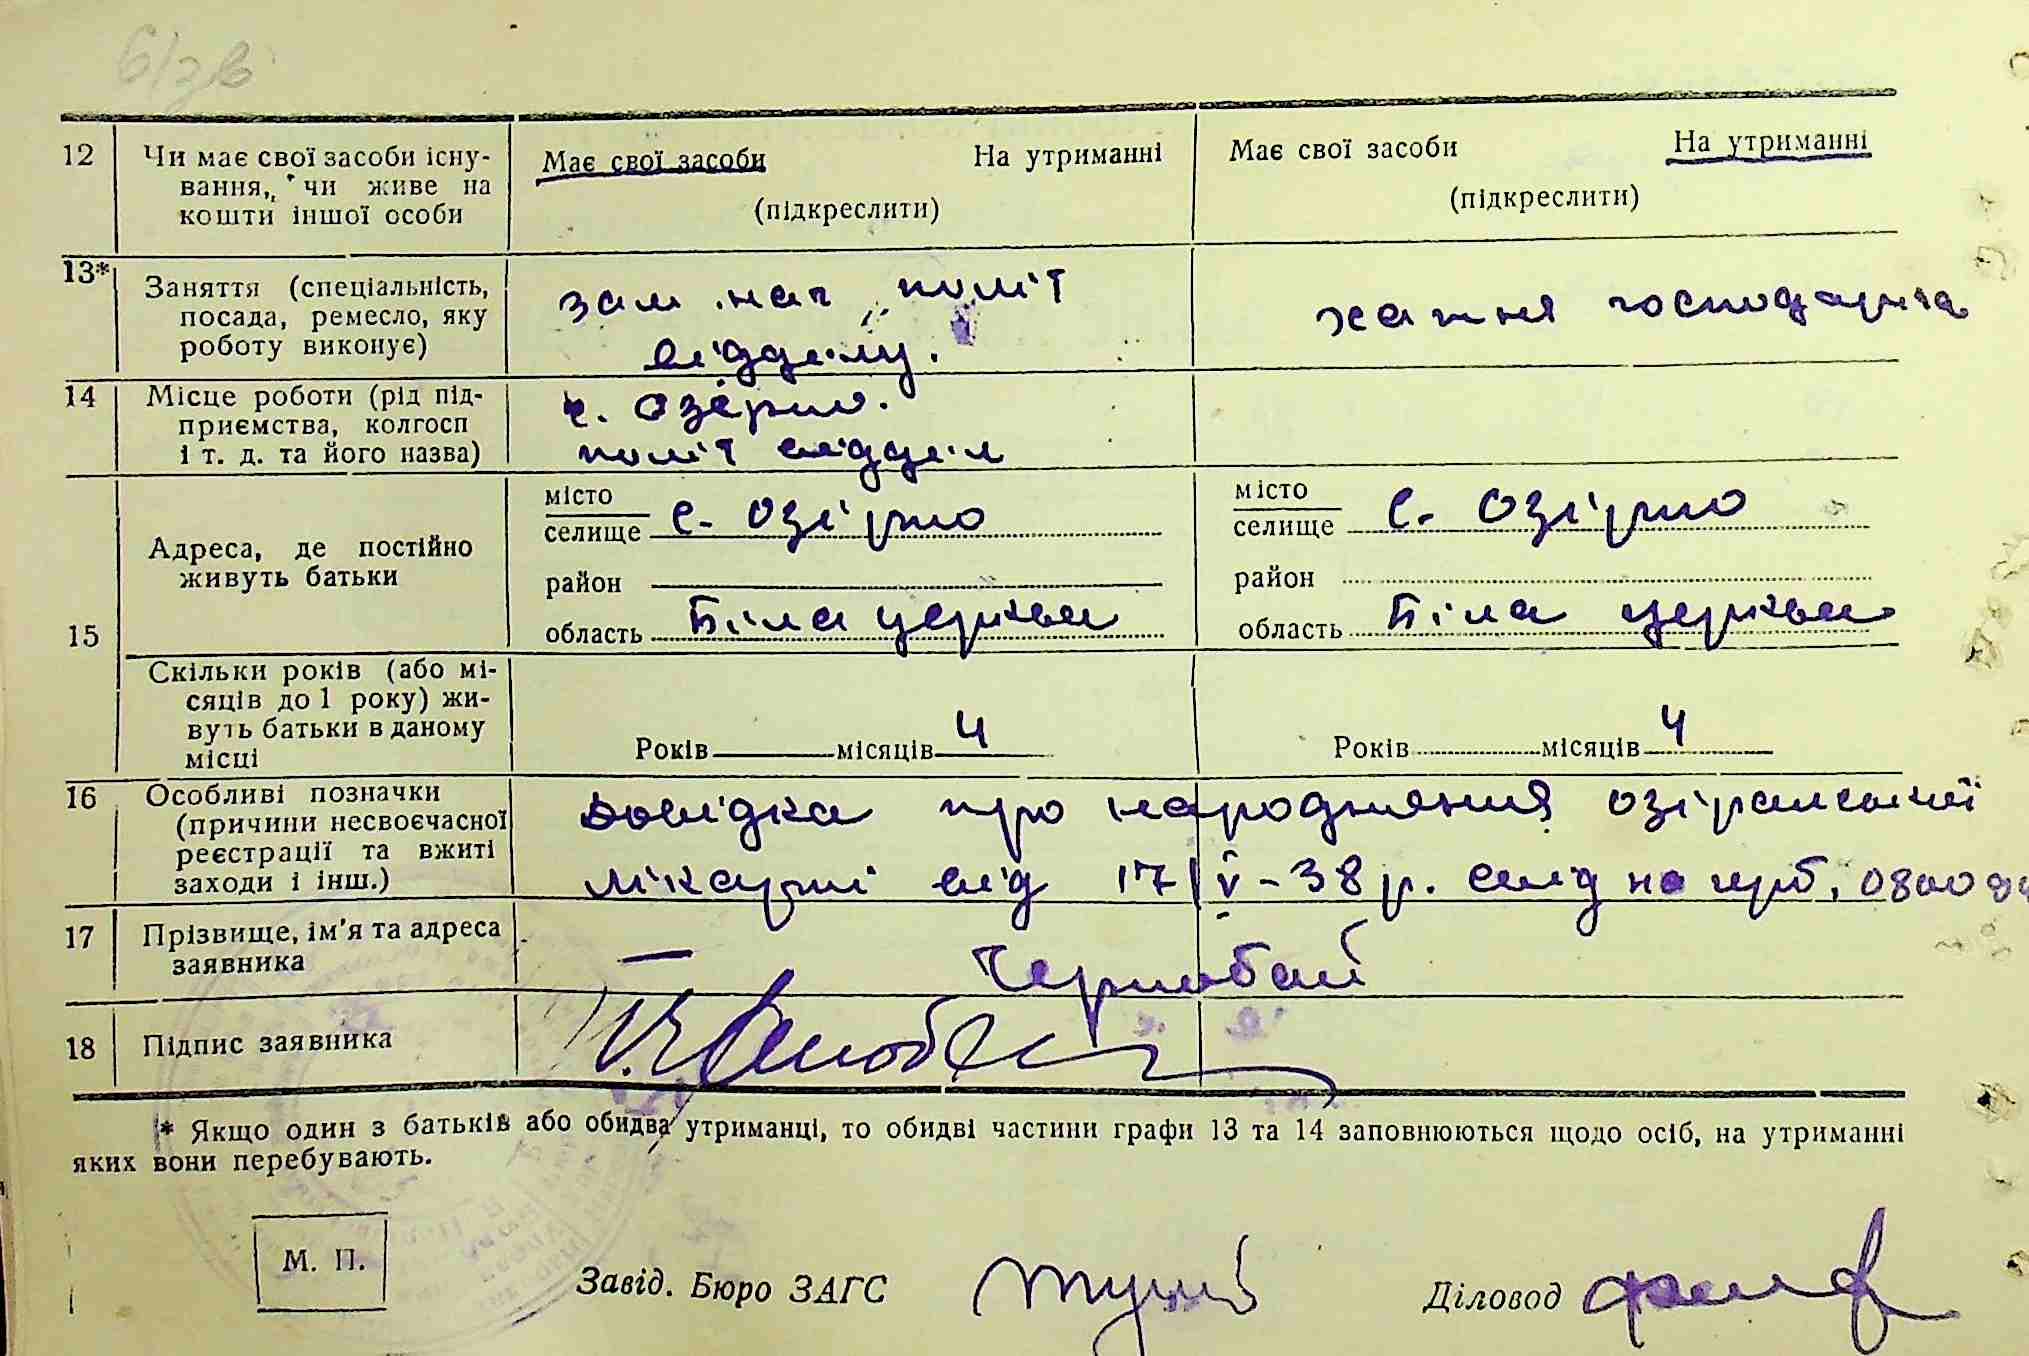 6/зв
12 Чи має свої засоби існу- Має свої засоби На утриманні Має свої засоби На утриманні
вання, чи живе на
кошти іншої особи (підкреслити) (підкреслити)
13* Заняття (спеціальність, зам нач політ хатня господарка
посада, ремесло, яку
роботу виконує) відділу.
14 Місце роботи (рід під- с. Озерно.
приємства, колгосп
і т. д. та його назва) політ відділ
15 Адреса, де постійно
живуть батьки
місто місто
селище с. Озірно селище с. Озірно
район район
область Біла церква область Біла церква
Скільки років (або мі-
сяців до 1 року) жи-
вуть батьки в даному
місці Років місяців 4 Років місяців 4
16 Особливі позначки довідка про народження озірянської
(причини несвоєчасної
реєстрації та вжиті
заходи і інш.) лікарні від 17/V-38 р.
17 Прізвище, ім'я та адреса
заявника — Чернобай
18 Підпис заявника
* Якщо один з батьків або обидва утриманці, то обидві частини графи 13 та 14 заповнюються щодо осіб, на утриманні
яких вони перебувають.
М. П.
Завід. Бюро ЗАГС Діловод